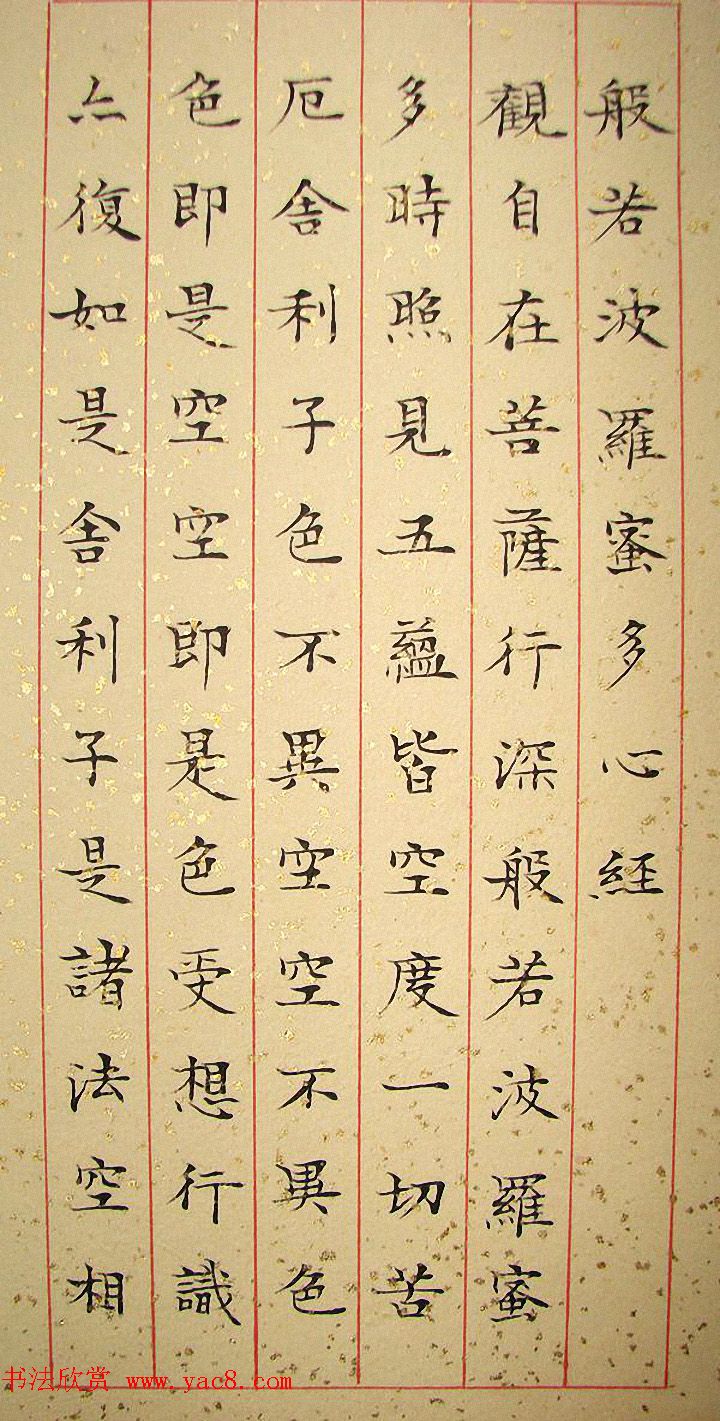 般若波羅蜜多心経
觀自在菩薩行深般若波羅蜜
多時照見五蘊皆空度一切苦
厄舍利子色不異空空不異色
色即是空空即是色受想行識
亦復如是舍利子是諸法空相
书法欣赏 www.yac8.com